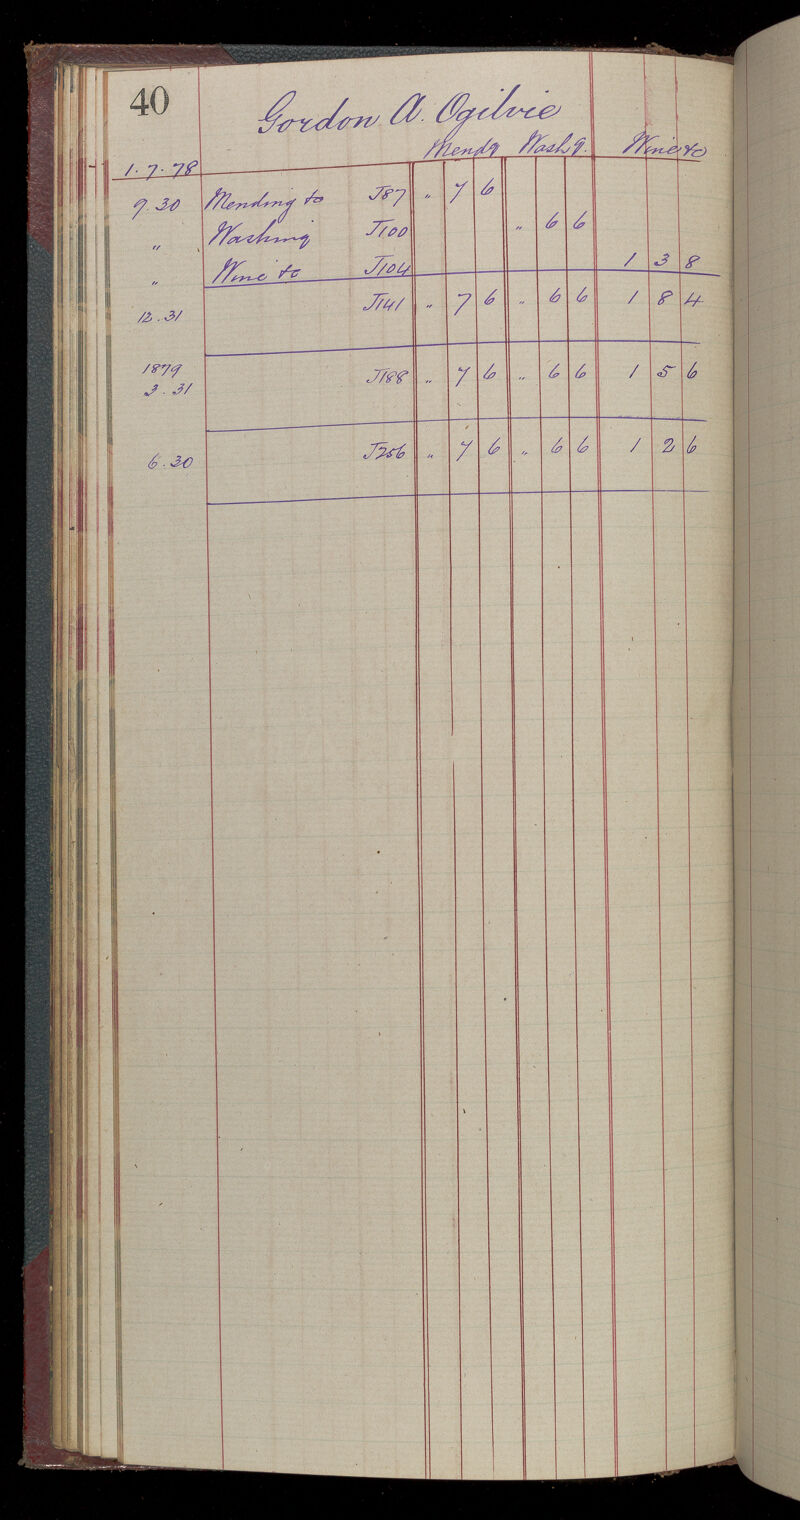 40
Gordon A. Ogilvie
Mendg Washg. Wine &c
1.7.78
9.30 Mending &c J87 " 7 6
" Washing J100 " 6 6
" Wine &c J104 1 3 8
12.31 J141 " 7 6 " 6 6 1 8 4
1879
3.31 J188 " 7 6 " 6 6 1 5 6
6.30 J256 " 7 6 " 6 6 1 2 6